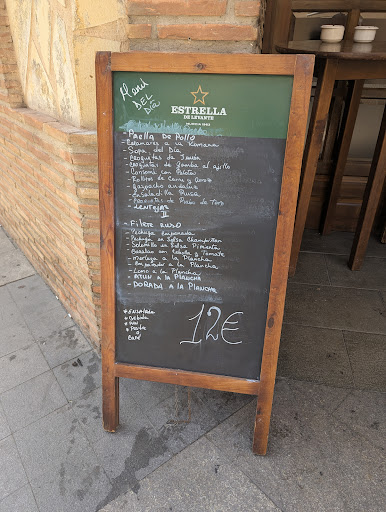 Menú
DEL
DÍA
ESTRELLA
DE LEVANTE
- Paella De Pollo
- Calamares a la Romana
- Sopa del Día
- Croquetas de Jamón
- Croquetas de Gamba al ajillo
- Consomé con Pelotas
- Rollitos de Carne y Arroz
- Gazpacho andaluz
- Ensaladilla Rusa
- de Rabo de Toro
- LENTEJAS
II
- Filete Ruso
- Pechuga Empanada
- Pechuga en Salsa Champiñon
- Secreto en Salsa Pimienta
- Bacalao con Cebolla y Tomate
- Merluza a la Plancha
- Emperador a la Plancha
- Lomo a la Plancha
- ATUN a LA PLANCHA
- DORADA A LA PLANCHA
* Ensalada
* Bebida
* Pan
* Postre
o
Café
12€